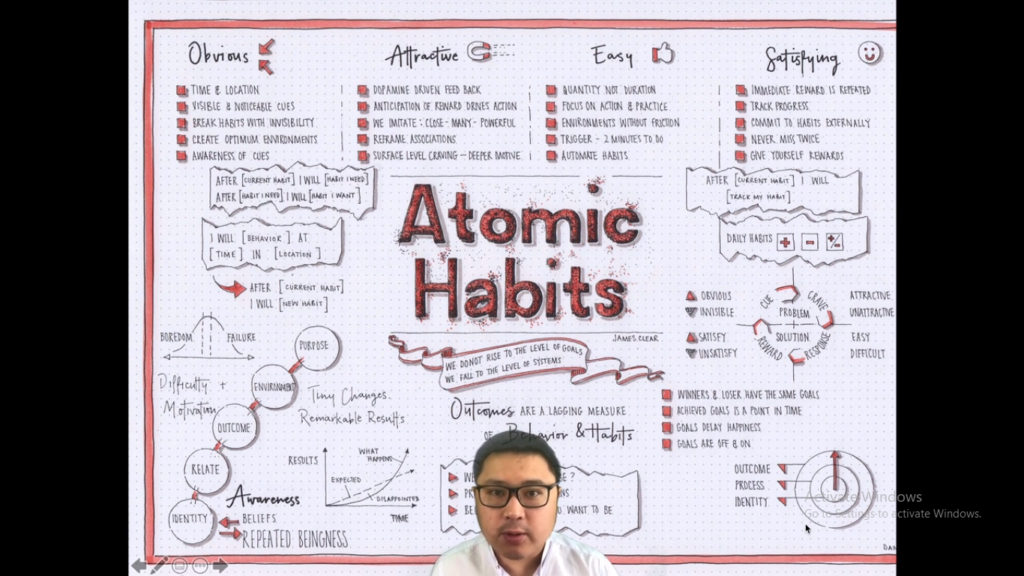 Obvious
TIME & LOCATION
VISIBLE & NOTICEABLE CUES
BREAK HABITS WITH INVISIBILITY
CREATE OPTIMUM ENVIRONMENTS
AWARENESS OF CUES
Attractive
DOPAMINE DRIVEN FEED BACK
ANTICIPATION OF REWARD DRIVES ACTION
WE IMITATE: CLOSE - MANY - POWERFUL
REFRAME ASSOCIATIONS
SURFACE LEVEL CRAVING - DEEPER MOTIVE
Easy
QUANTITY NOT DURATION
FOCUS ON ACTION & PRACTICE
ENVIRONMENTS WITHOUT FRICTION
TRIGGER - 2 MINUTES TO DO
AUTOMATE HABITS
Satisfying
IMMEDIATE REWARD IS REPEATED
TRACK PROGRESS
COMMIT TO HABITS EXTERNALLY
NEVER MISS TWICE
GIVE YOURSELF REWARDS
AFTER [CURRENT HABIT] I WILL [HABIT I NEED]
AFTER [HABIT I NEED] I WILL [HABIT I WANT]
I WILL [BEHAVIOR] AT
[TIME] IN [LOCATION]
AFTER [CURRENT HABIT]
I WILL [NEW HABIT]
Atomic
Habits
JAMES CLEAR
WE DO NOT RISE TO THE LEVEL OF GOALS
WE FALL TO THE LEVEL OF SYSTEMS
AFTER [CURRENT HABIT] I WILL
[TRACK MY HABIT]
DAILY HABITS + - +/-
OBVIOUS
INVISIBLE
SATISFY
UNSATISFY
CUE
CRAVE
RESPONSE
REWARD
PROBLEM
SOLUTION
ATTRACTIVE
UNATTRACTIVE
EASY
DIFFICULT
BOREDOM
FAILURE
Difficulty +
Motivation
PURPOSE
ENVIRONMENT
OUTCOME
RELATE
IDENTITY
Tiny Changes.
Remarkable Results
Awareness
BELIEFS
REPEATED BEINGNESS
RESULTS
WHAT HAPPENS
EXPECTED
DISAPPOINTED
TIME
Outcomes ARE A LAGGING MEASURE
OF Behavior & Habits
WANT TO BE
WINNERS & LOSER HAVE THE SAME GOALS
ACHIEVED GOALS IS A POINT IN TIME
GOALS DELAY HAPPINESS
GOALS ARE OFF & ON
OUTCOME
PROCESS
IDENTITY
Activate Windows
Go to Settings to activate Windows.